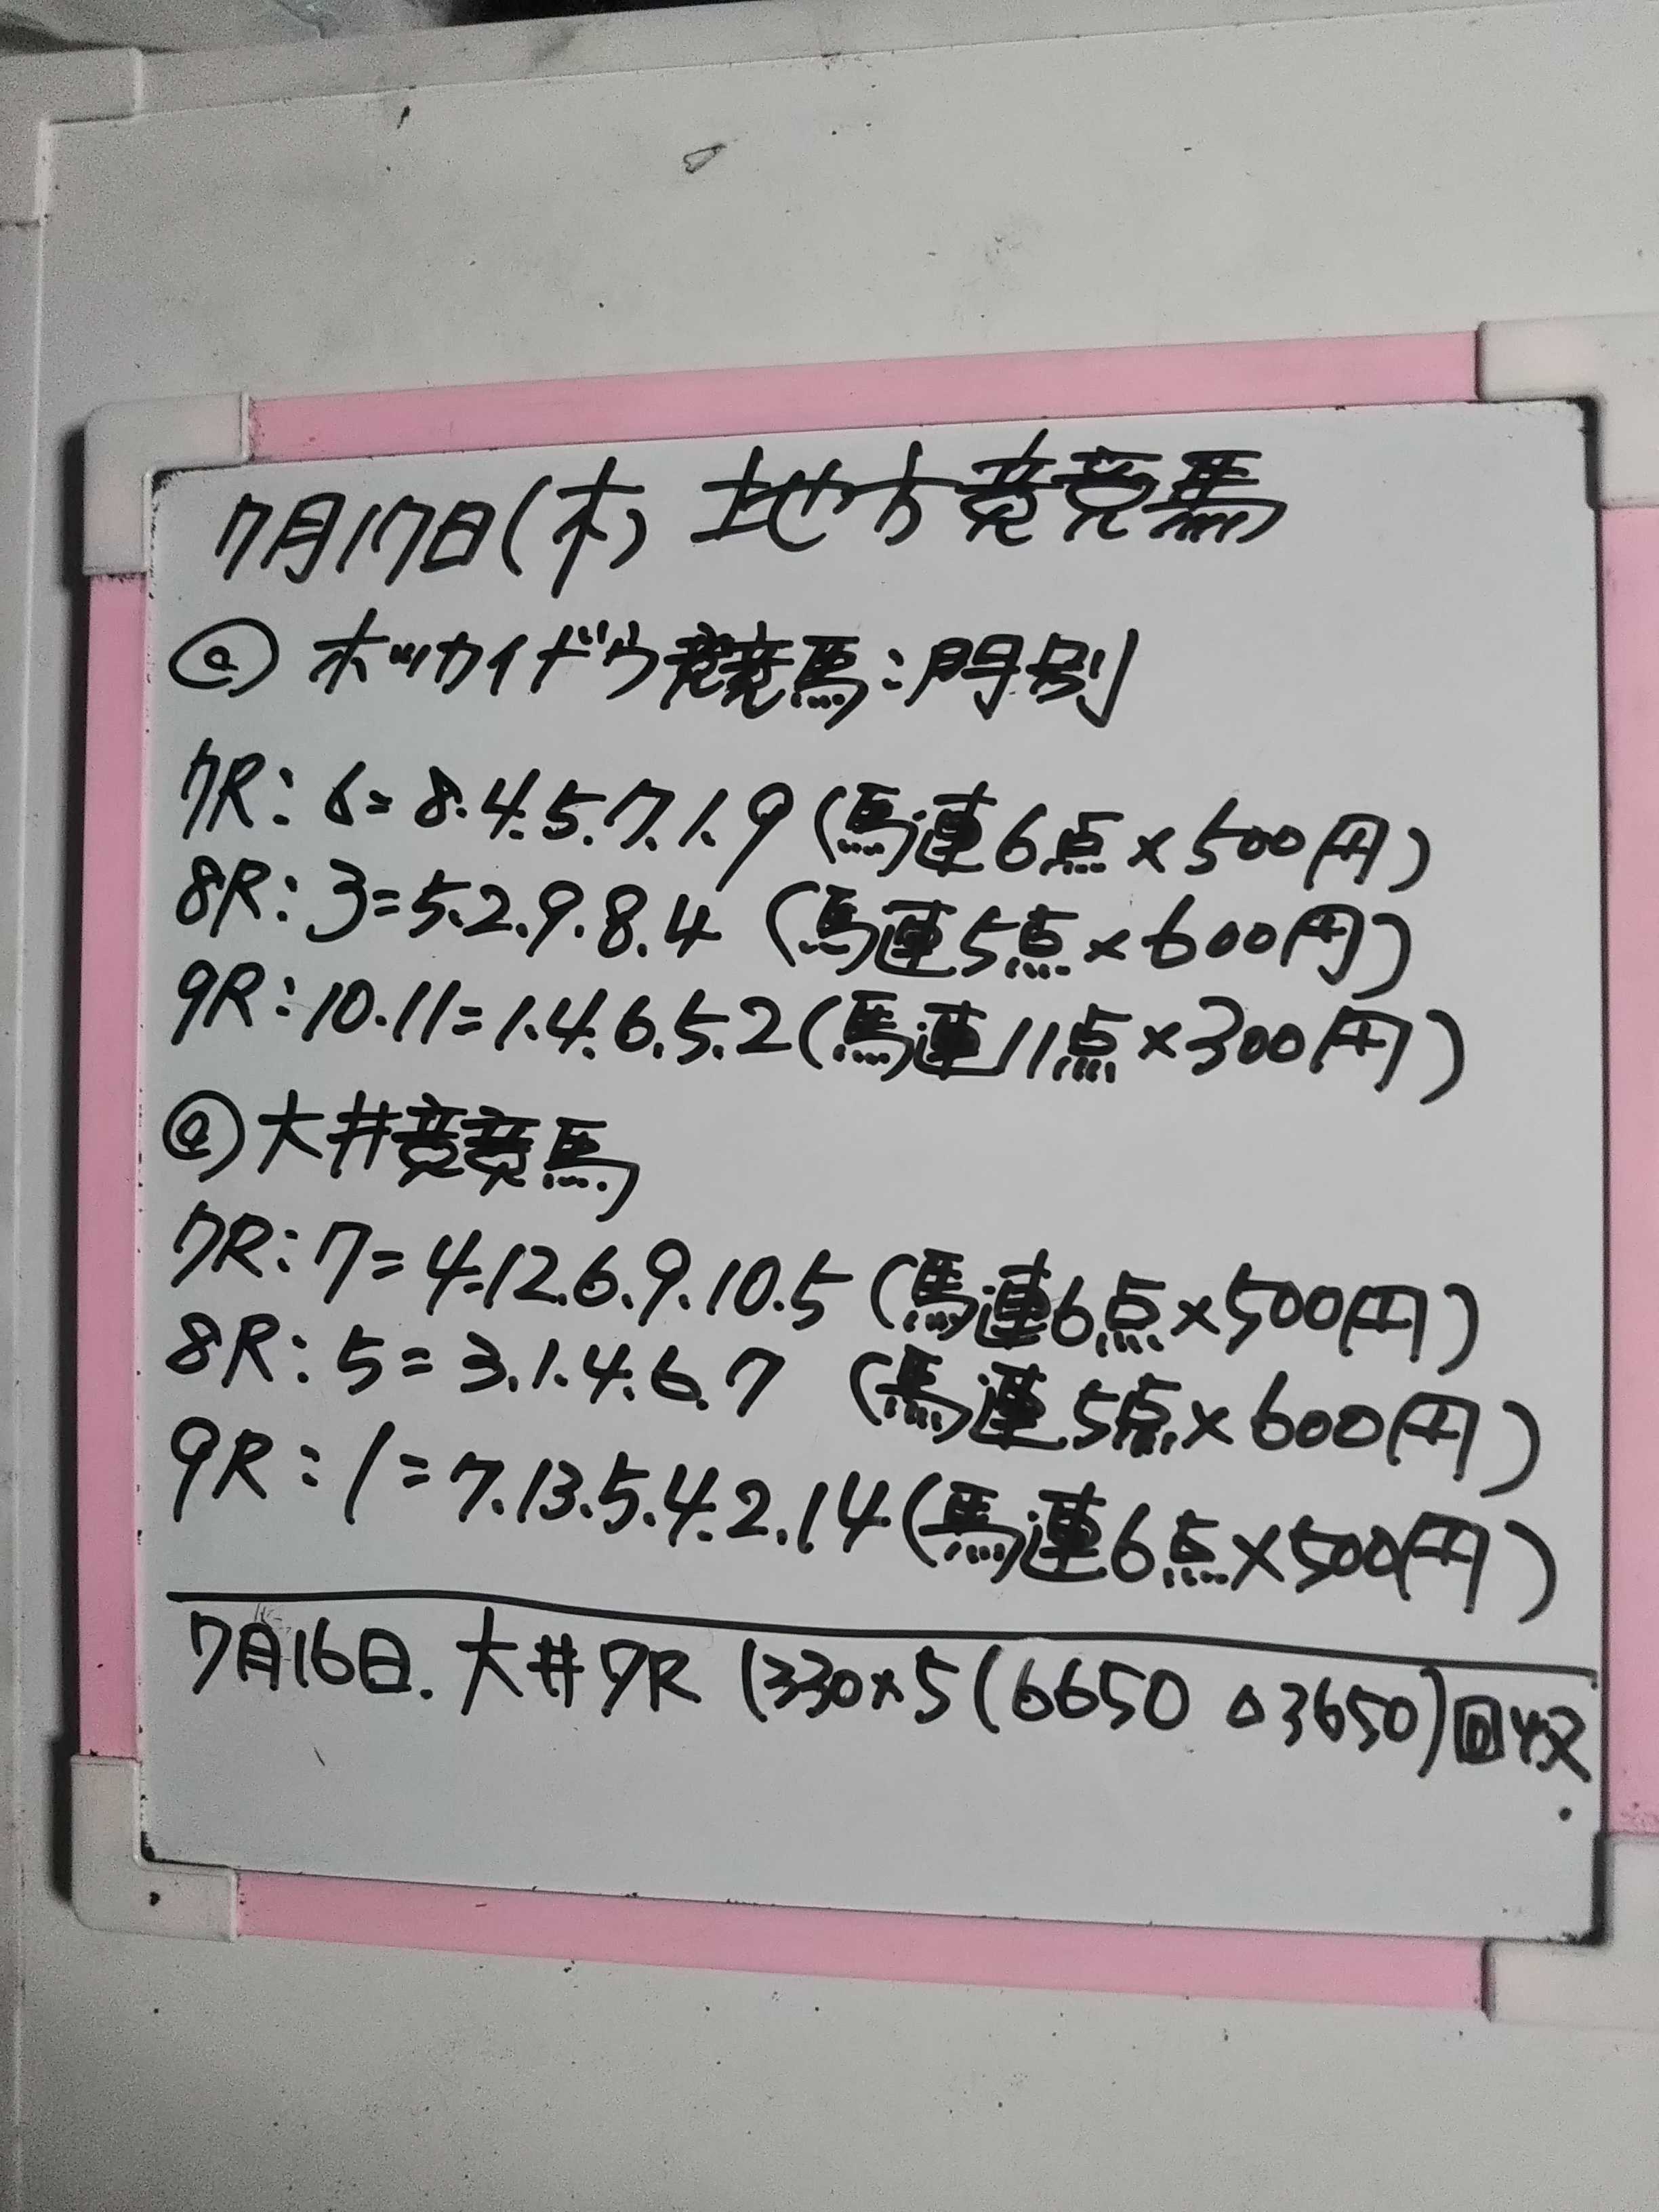 7月17日(木) 地方競馬
@ ホッカイドウ競馬:門別
7R: 6=8.4.5.7.1.9 (馬連6点×500円)
8R: 3=5.2.9.8.4 (馬連5点×600円)
9R: 10.11=1.4.6.5.2 (馬連11点×300円)
@大井競馬
7R: 7=4.12.6.9.10.5 (馬連6点×500円)
8R: 5=3.1.4.6.7 (馬連5点×600円)
9R: 1=7.13.5.4.2.14 (馬連6点×500円)
7月16日. 大井9R 1330×5(6650 △3650)回収.